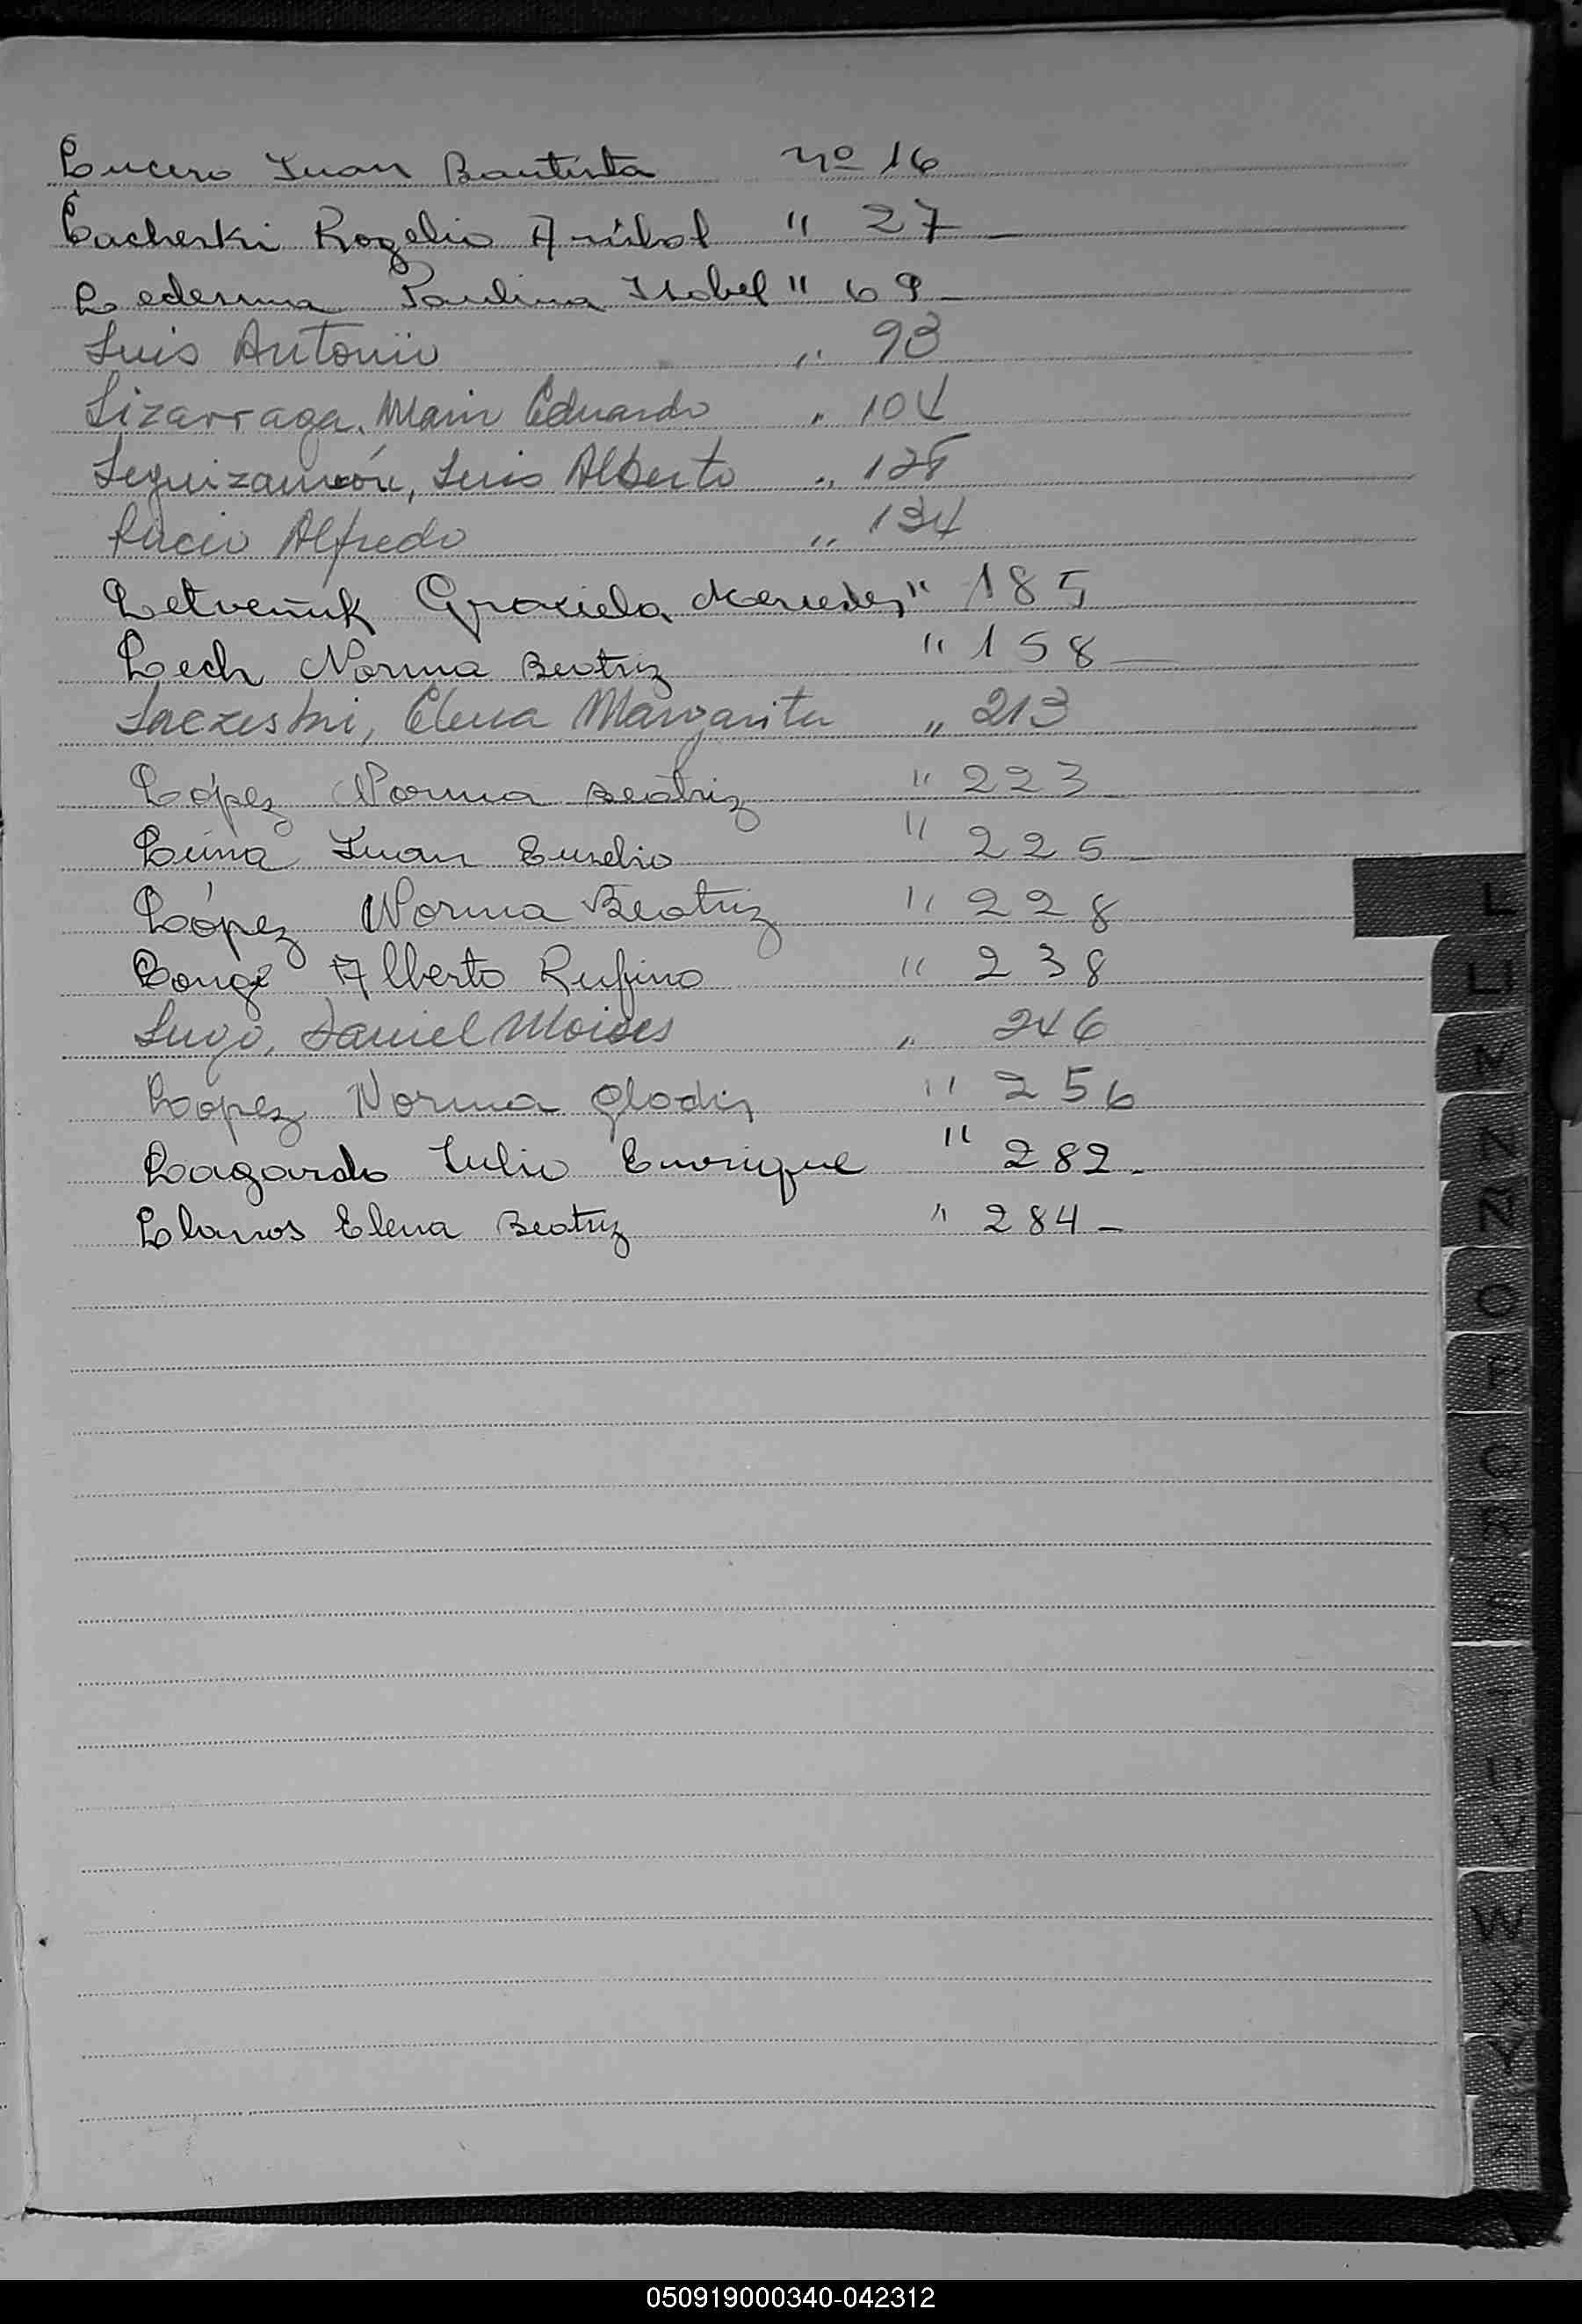 Lucero Juan Bautista nº 16
Lacheski Rogelio Anibal " 27 -
Ledesma Paulina Isabel " 69 -
Luis Antonio " 93
Lizarraga, Mario Eduardo " 104
Leguizamón, Luis Alberto "
Lucio Alfredo " 134
Graciela Mercedes " 185
Lech Norma Beatriz " 158 -
Elena Margarita " 213
López Norma Beatriz " 223 -
Luna Juan Eusebio " 225 -
López Norma Beatriz " 228
Alberto Rufino " 238
Lugo, Daniel Moises " 246
Lopez Norma Gladis " 256
Lagardo Julio Enrique " 282 -
Llanos Elena Beatriz " 284 -
L
LL
M
N
Ñ
O
P
Q
R
S
T
U
V
W
X
Y
Z
050919000340-042312